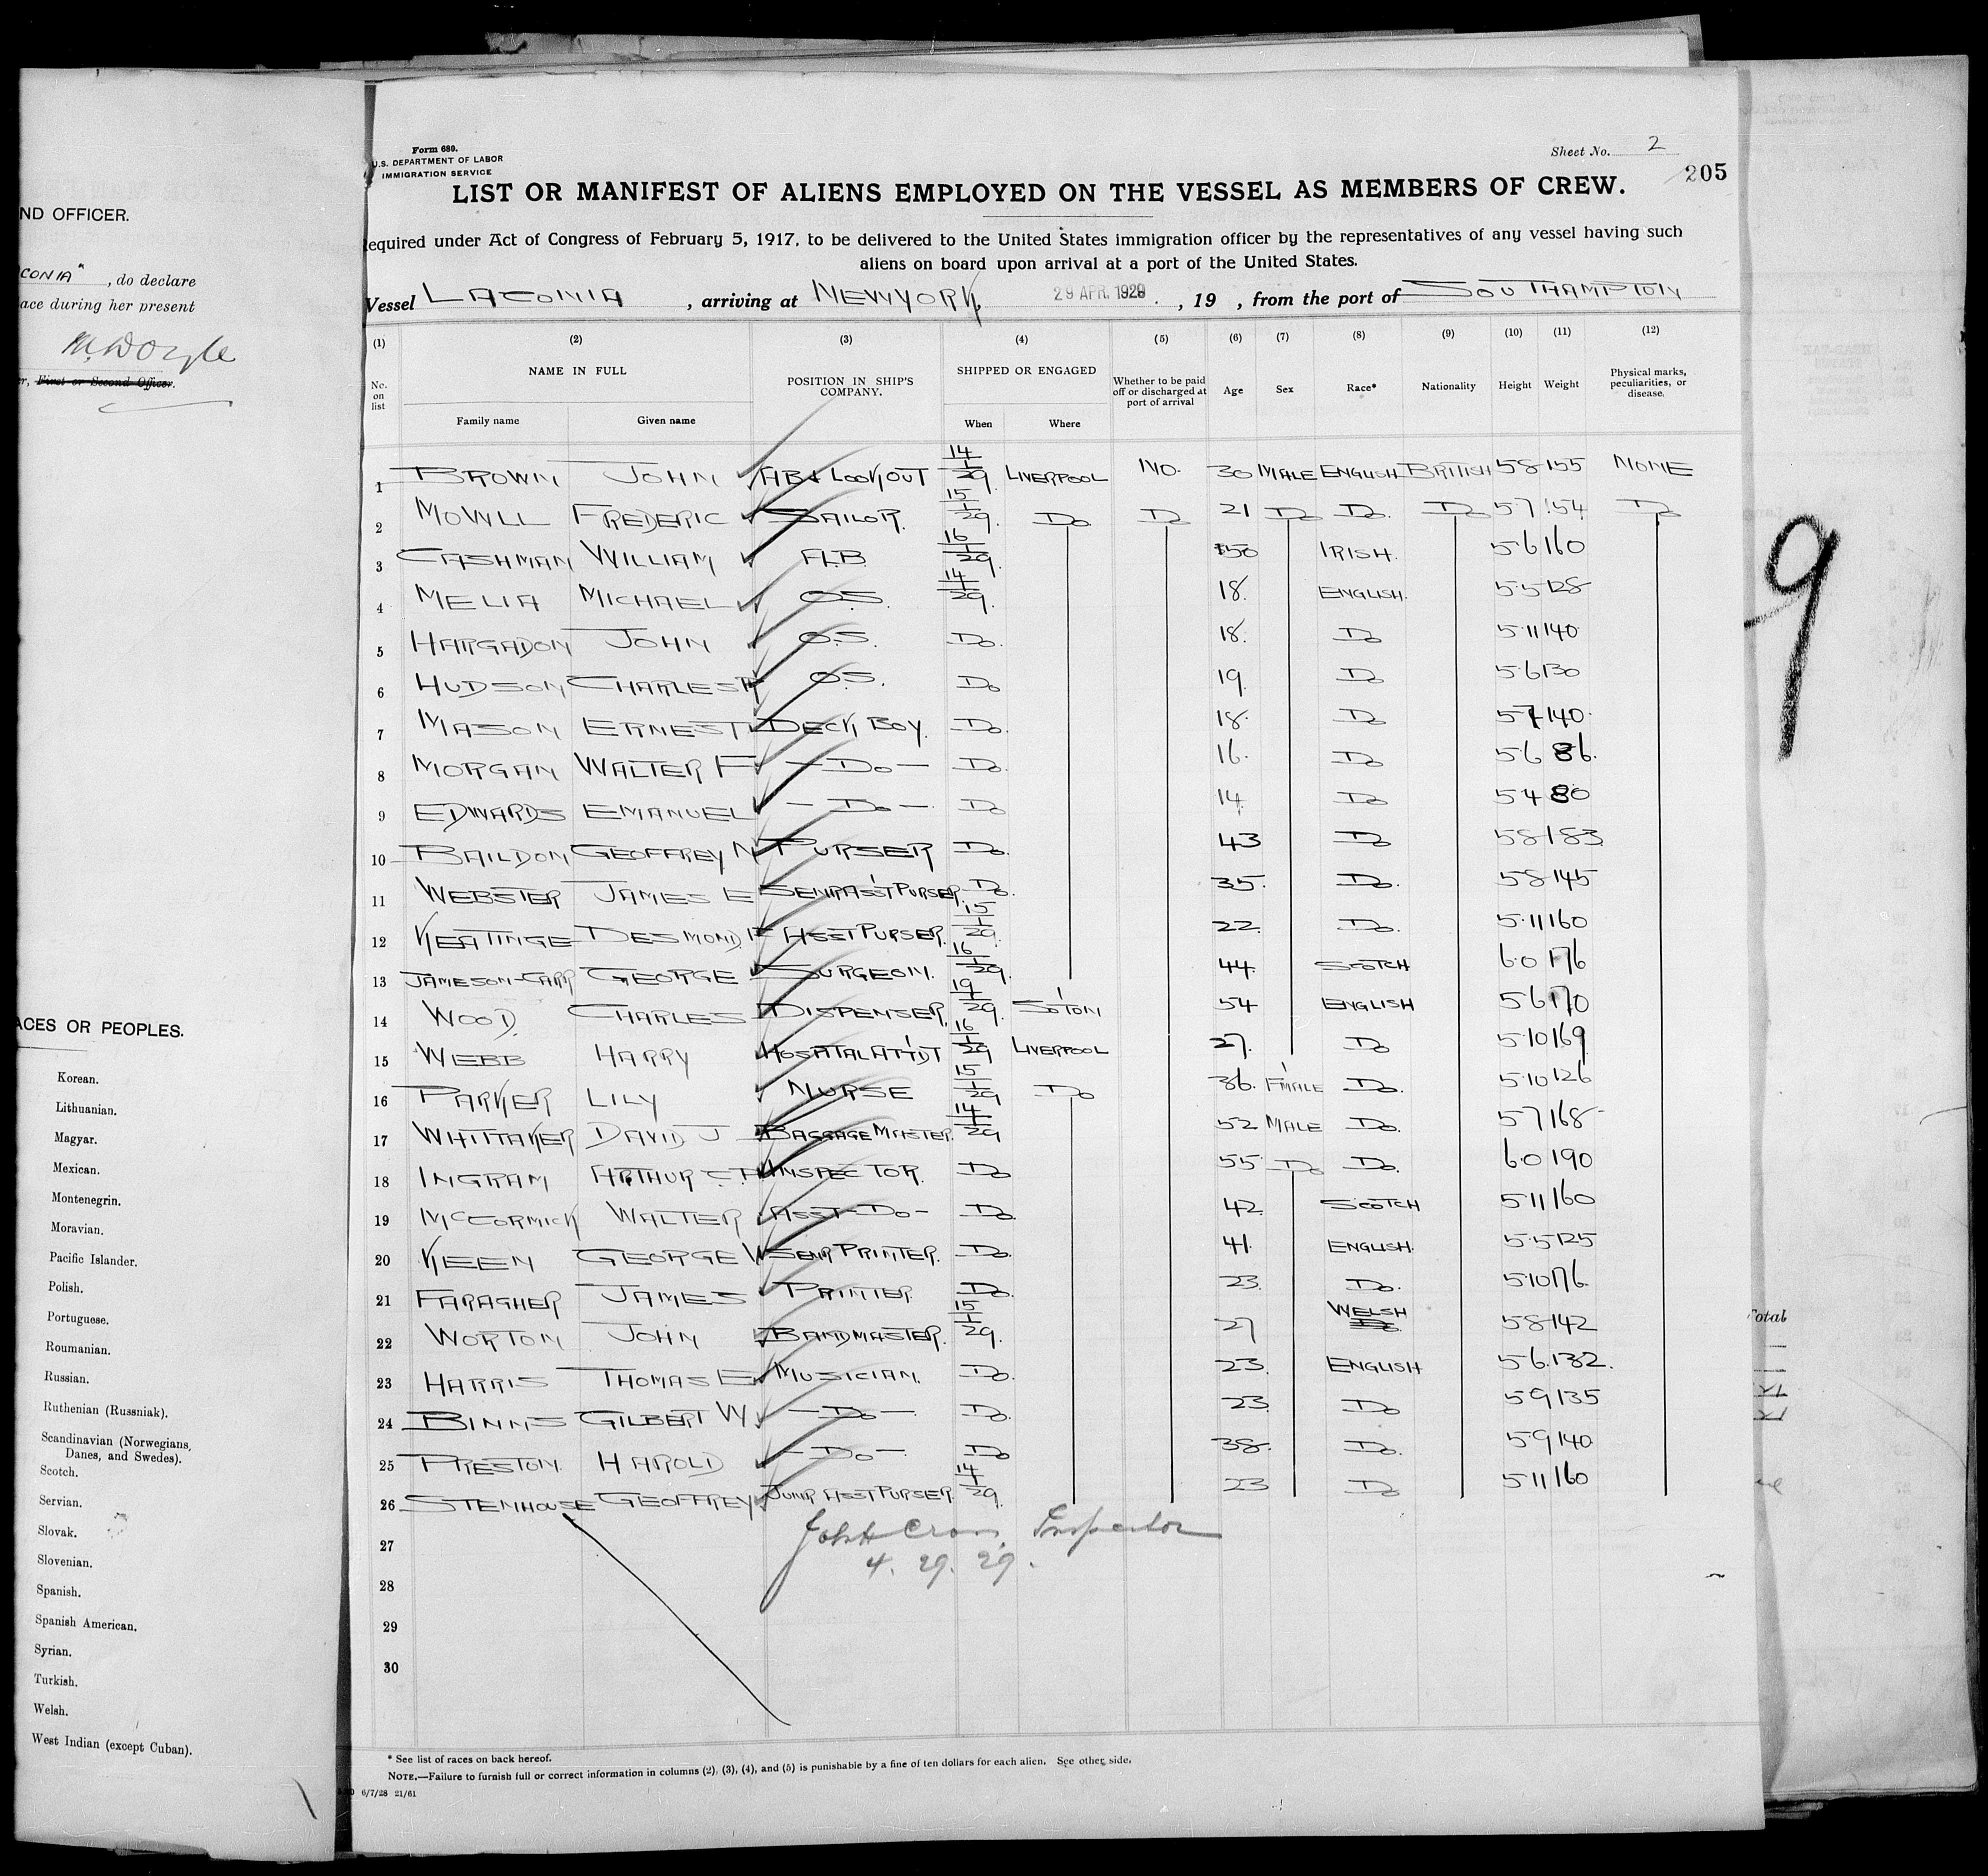 ND OFFICER.
CONIA", do declare
ace during her present
M. Doyle
r, First or Second Officer.
ACES OR PEOPLES.
Korean.
Lithuanian.
Magyar.
Mexican.
Montenegrin.
Moravian.
Pacific Islander.
Polish.
Portuguese.
Roumanian.
Russian.
Ruthenian (Russniak).
Scandinavian (Norwegians,
Danes, and Swedes).
Scotch.
Servian.
Slovak.
Slovenian.
Spanish.
Spanish American.
Syrian.
Turkish.
Welsh.
West Indian (except Cuban).
Form 680.
U.S. DEPARTMENT OF LABOR
IMMIGRATION SERVICE
Sheet No. 2
205
LIST OR MANIFEST OF ALIENS EMPLOYED ON THE VESSEL AS MEMBERS OF CREW.
equired under Act of Congress of February 5, 1917, to be delivered to the United States immigration officer by the representatives of any vessel having such
aliens on board upon arrival at a port of the United States.
Vessel LACONIA, arriving at NEW YORK, 29 APR. 1929, 19 , from the port of SOUTHAMPTON
(1) (2) (3) (4) (5) (6) (7) (8) (9) (10) (11) (12)
No. on list NAME IN FULL POSITION IN SHIP'S COMPANY. SHIPPED OR ENGAGED Whether to be paid off or discharged at port of arrival Age Sex Race* Nationality Height Weight Physical marks, peculiarities, or disease.
Family name Given name When Where
1 BROWN JOHN AB & LOOKOUT 14/1/29 LIVERPOOL NO. 30 MALE ENGLISH BRITISH 5 8 155 NONE
2 MOWLL FREDERIC SAILOR. 15/1/29. Do Do 21 Do Do. Do 5 7 154 Do
3 CASHMAN WILLIAM A.B. 16/1/29. 50 IRISH. 5 6 160
4 MELIA MICHAEL O.S. 14/1/29. 18. ENGLISH. 5.5 128
5 HARGADON JOHN O.S. Do. 18. Do 5.11 140
6 HUDSON CHARLES O.S. Do 19. Do 5.6 130
7 MASON ERNEST DECK BOY. Do. 18. Do 5 7 140.
8 MORGAN WALTER F - Do - Do. 16. Do 5 6 86.
9 EDWARDS EMANUEL - Do - Do 14. Do 5 4 80
10 BAILDON GEOFFREY N PURSER Do. 43 Do 5 8 183
11 WEBSTER JAMES E SENR ASST PURSER. Do. 35. Do. 5 8 145
12 KEATINGE DESMOND ASST PURSER. 15/1/29. 22. Do. 5.11 160
13 JAMESON-CARR GEORGE SURGEON. 16/1/29. 44. SCOTCH 6.0 176
14 WOOD. CHARLES DISPENSER, 19/1/29. SO'TON 54 ENGLISH 5 6 170
15 WEBB HARRY HOSPITAL ATT'DT 16/1/29 LIVERPOOL 27. Do 5.10 169
16 PARKER LILY NURSE 15/1/29 Do 36. F'MALE Do. 5.10 126
17 WHITTAKER DAVID J BAGGAGE MASTER. 14/1/29 52 MALE Do. 5 7 168
18 INGRAM ARTHUR INSPECTOR. Do 55 Do Do. 6.0 190
19 McCORMICK WALTER ASST - Do - Do. 42. SCOTCH 5 11 160
20 KEEN GEORGE W SENR PRINTER. Do. 41. ENGLISH. 5.5 125
21 FARAGHER JAMES PRINTER Do. 23. Do. 5.10 176.
22 WORTON JOHN BANDMASTER. 15/1/29. 27 WELSH Do. 5 8 142
23 HARRIS THOMAS E MUSICIAN. Do. 23. ENGLISH 5 6. 132.
24 BINNS GILBERT W. - Do -. Do. 23 Do 5 9 135
25 PRESTON. HAROLD - Do -. Do 38. Do. 5 9 140
26 STENHOUSE GEOFFREY JUNR ASST PURSER. 14/1/29. 23 Do 5 11 160
Inspector
27
4. 29. 29.
28
29
30
* See list of races on back hereof.
NOTE.—Failure to furnish full or correct information in columns (2), (3), (4), and (5) is punishable by a fine of ten dollars for each alien. See other side.
6/7/28 21/61
9
Total